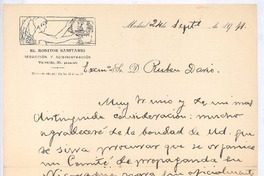 Madrid 24 Septe de 1911.
EL MONITOR SANITARIO
REDACCIÓN Y ADMINISTRACIÓN
Excmo Sr. D. Ruben Dario.
Muy Sr mio y de mi mas
distinguida consideración: mucho
agradeceré de la bondad de Ud. que
se sirva procurar que se organice
un Comité de propaganda en
Nicaragua para que oficialmente